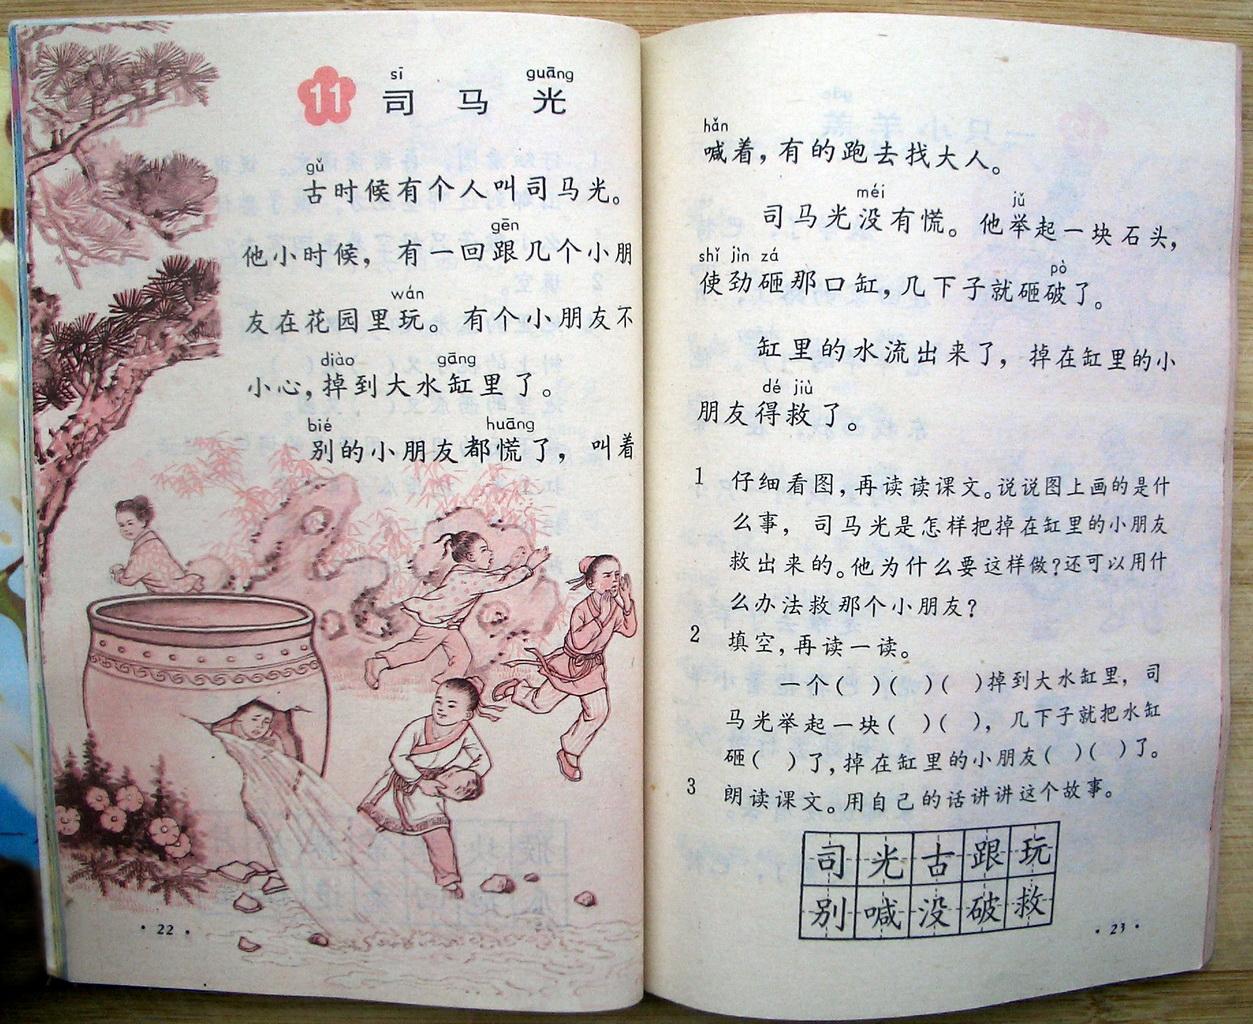 11
sī guāng
司马光
gǔ
古时候有个人叫司马光。
gēn
他小时候，有一回跟几个小朋
wán
友在花园里玩。有个小朋友不
diào gāng
小心，掉到大水缸里了。
bié huāng
别的小朋友都慌了，叫着
·22·
hǎn
喊着，有的跑去找大人。
méi jǔ
司马光没有慌。他举起一块石头，
shǐ jìn zá pò
使劲砸那口缸，几下子就砸破了。
缸里的水流出来了，掉在缸里的小
dé jiù
朋友得救了。
1 仔细看图，再读读课文。说说图上画的是什
么事，司马光是怎样把掉在缸里的小朋友
救出来的。他为什么要这样做？还可以用什
么办法救那个小朋友？
2 填空，再读一读。
一个( )( )( )掉到大水缸里，司
马光举起一块( )( )，几下子就把水缸
砸( )了，掉在缸里的小朋友( )( )了。
3 朗读课文。用自己的话讲讲这个故事。
司光古跟玩
别喊没破救
·23·